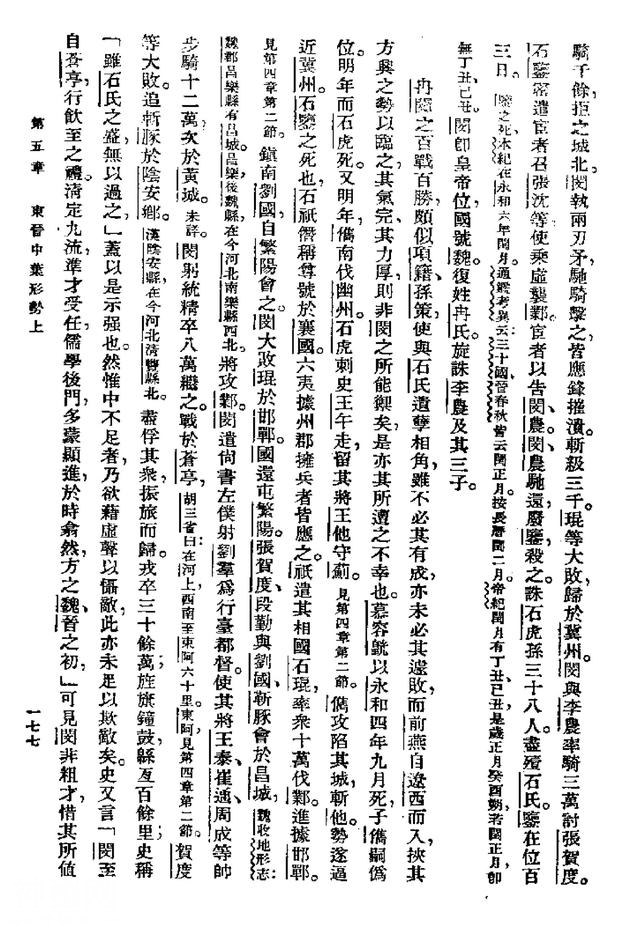 騎千餘,拒之城北。閔執兩刃矛,馳騎擊之,皆應鋒摧潰,斬級三千。琨等大敗,歸於冀州。閔與李農率騎三萬討張賀度。
石鑒密遣宦者召張沈等,使乘虛襲鄴。宦者以告閔、農。閔、農馳還,廢鑒,殺之。誅石虎孫三十八人。盡殪石氏。鑒在位百
三日。鑒之死,本紀在永和六年閏月。通鑑考異云:三十國晉春秋皆云閏正月。按長曆閏二月。帝紀閏月有丁丑、己丑。是歲正月癸酉朔,若閏正月,即
無丁丑、己丑。閔卽皇帝位,國號魏。復姓冉氏。旋誅李農及其三子。
冉閔之百戰百勝,頗似項籍、孫策,使與石氏遺孽相角,雖不必其有成,亦未必其遽敗,而前燕自遼西而入,挾其
方興之勢以臨之,其氣完,其力厚,則非閔之所能禦矣。是亦其所遭之不幸也。慕容皝以永和四年九月死,子儁嗣僞
位。明年而石虎死。又明年,儁南伐幽州。石虎刺史王午走,留其將王他守薊。見第四章第二節。儁攻陷其城,斬他。勢遂逼
近冀州。石鑒之死也,石祗僭稱尊號於襄國。六夷據州郡擁兵者皆應之。祗遣其相國石琨,率衆十萬伐鄴。進據邯鄲。
見第四章第二節。鎮南劉國,自繁陽會之。閔大敗琨於邯鄲。國還屯繁陽。張賀度、段勤與劉國、靳豚會於昌城。魏收地形志:
魏郡昌樂縣有昌城。昌樂,後魏縣,在今河北南樂縣西北。將攻鄴。閔遣尙書左僕射劉羣爲行臺都督,使其將王泰、崔通、周成等帥
步騎十二萬,次於黃城。未詳。閔躬統精卒八萬繼之。戰於蒼亭,胡三省曰:在河上,西南至東阿六十里。東阿,見第四章第二節。賀度
等大敗。追斬豚於陰安鄉。漢陰安縣,在今河北清豐縣北。盡俘其衆,振旅而歸。戎卒三十餘萬;旌旗鐘鼓,緜亙百餘里;史稱
「雖石氏之盛,無以過之,」蓋以是示强也。然惟中不足者,乃欲藉虛聲以懾敵,此亦未足以欺敵矣。史又言「閔至
自蒼亭,行飲至之禮,清定九流,準才受任,儒學後門,多蒙顯進,於時翕然,方之魏、晉之初,」可見閔非粗才,惜其所値
第五章 東晉中葉形勢上
一七七